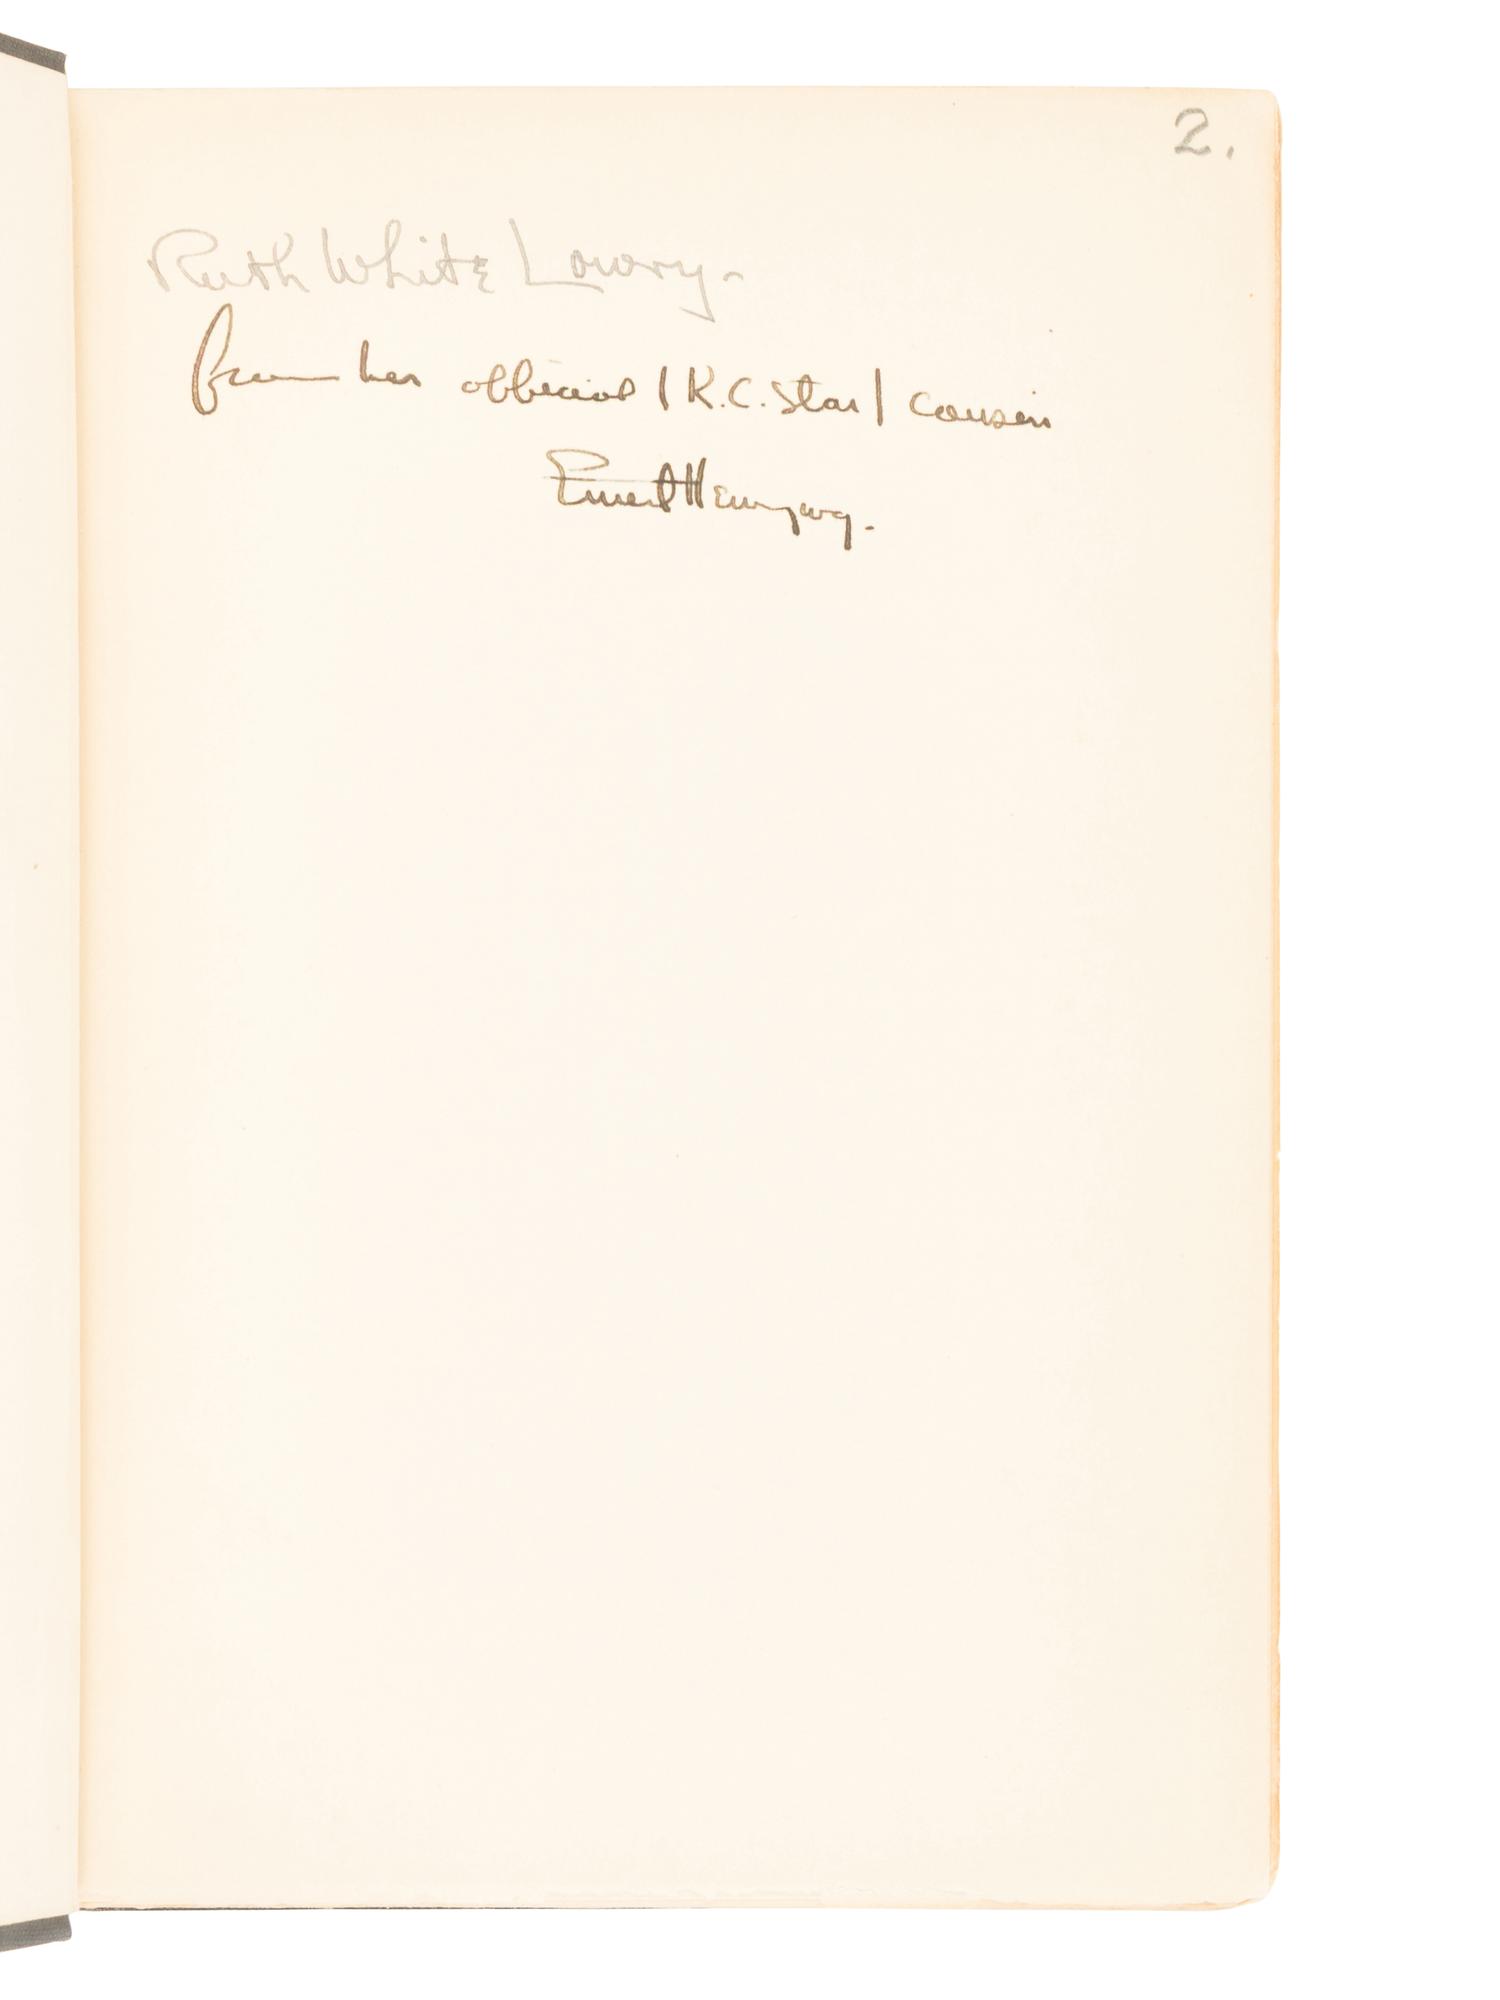 2.
Ruth White Lowry –
from her official | K.C. Star | cousin
Ernest Hemingway.